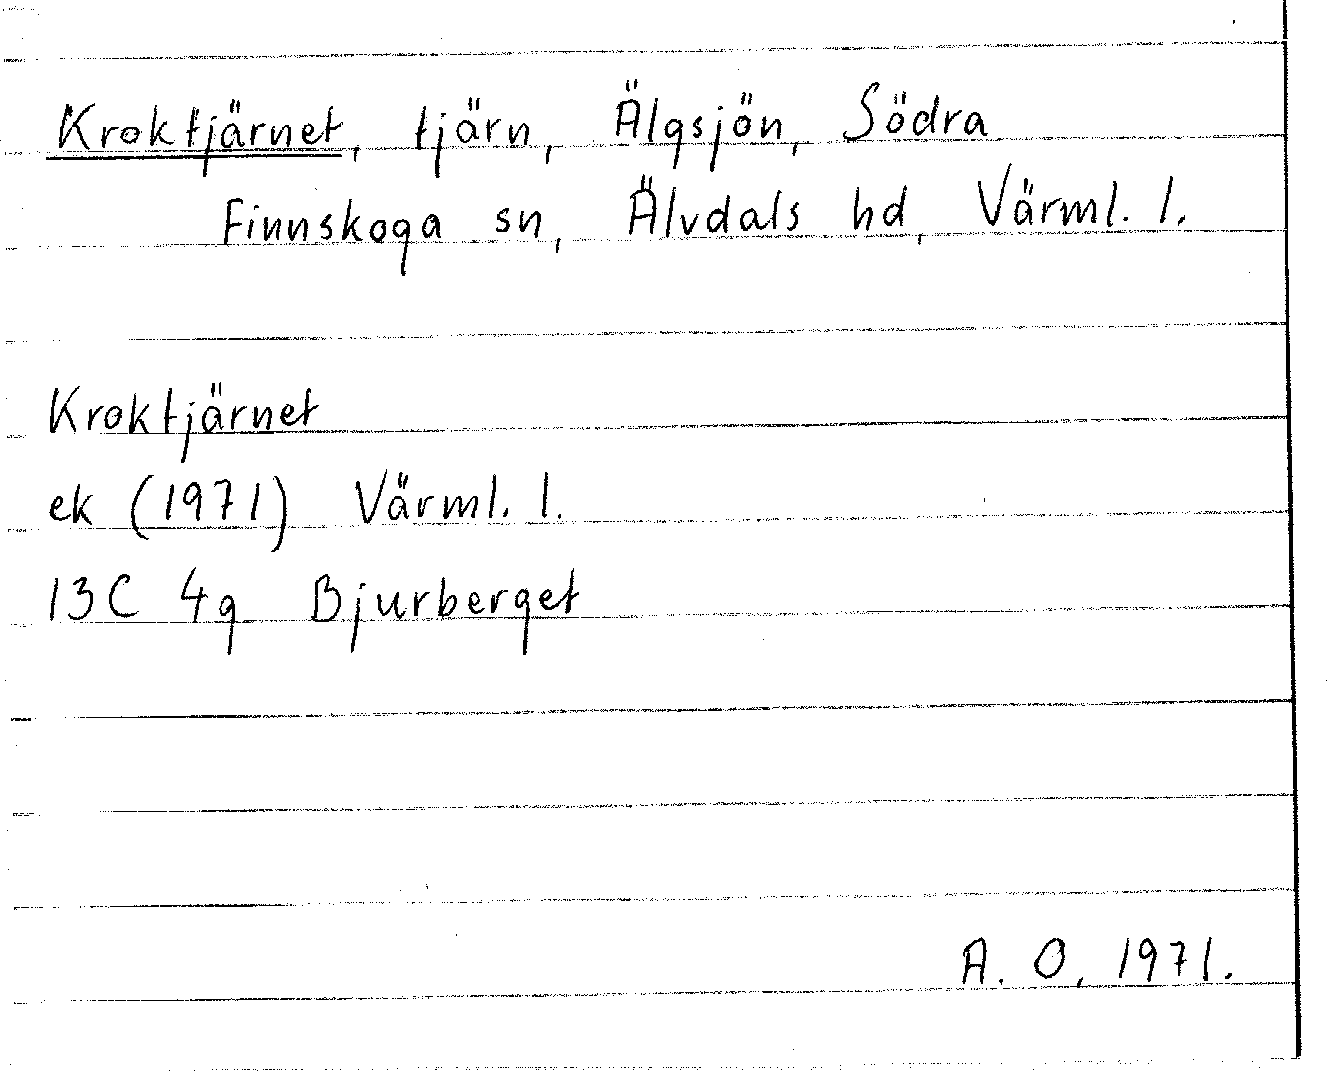 Kroktjärnet, tjärn, Älgsjön, Södra
Finnskoga sn, Älvdals hd, Värml. l.
Kroktjärnet
ek (1971) Värml. l.
13C 4g Bjurberget
A. O, 1971.